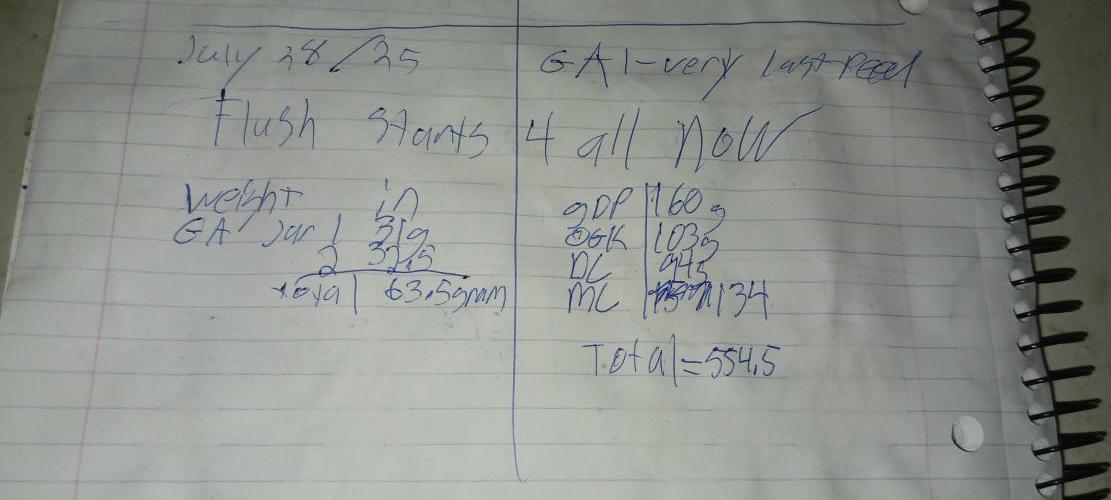 July 28/25
GA1-very last feed
Flush starts 4 all NOW
Weight in
GA Jar 1 31g
2 32.5
total 63.5gram
gDP 160g
OGK 103g
DC 94g
MC 134
Total=554.5